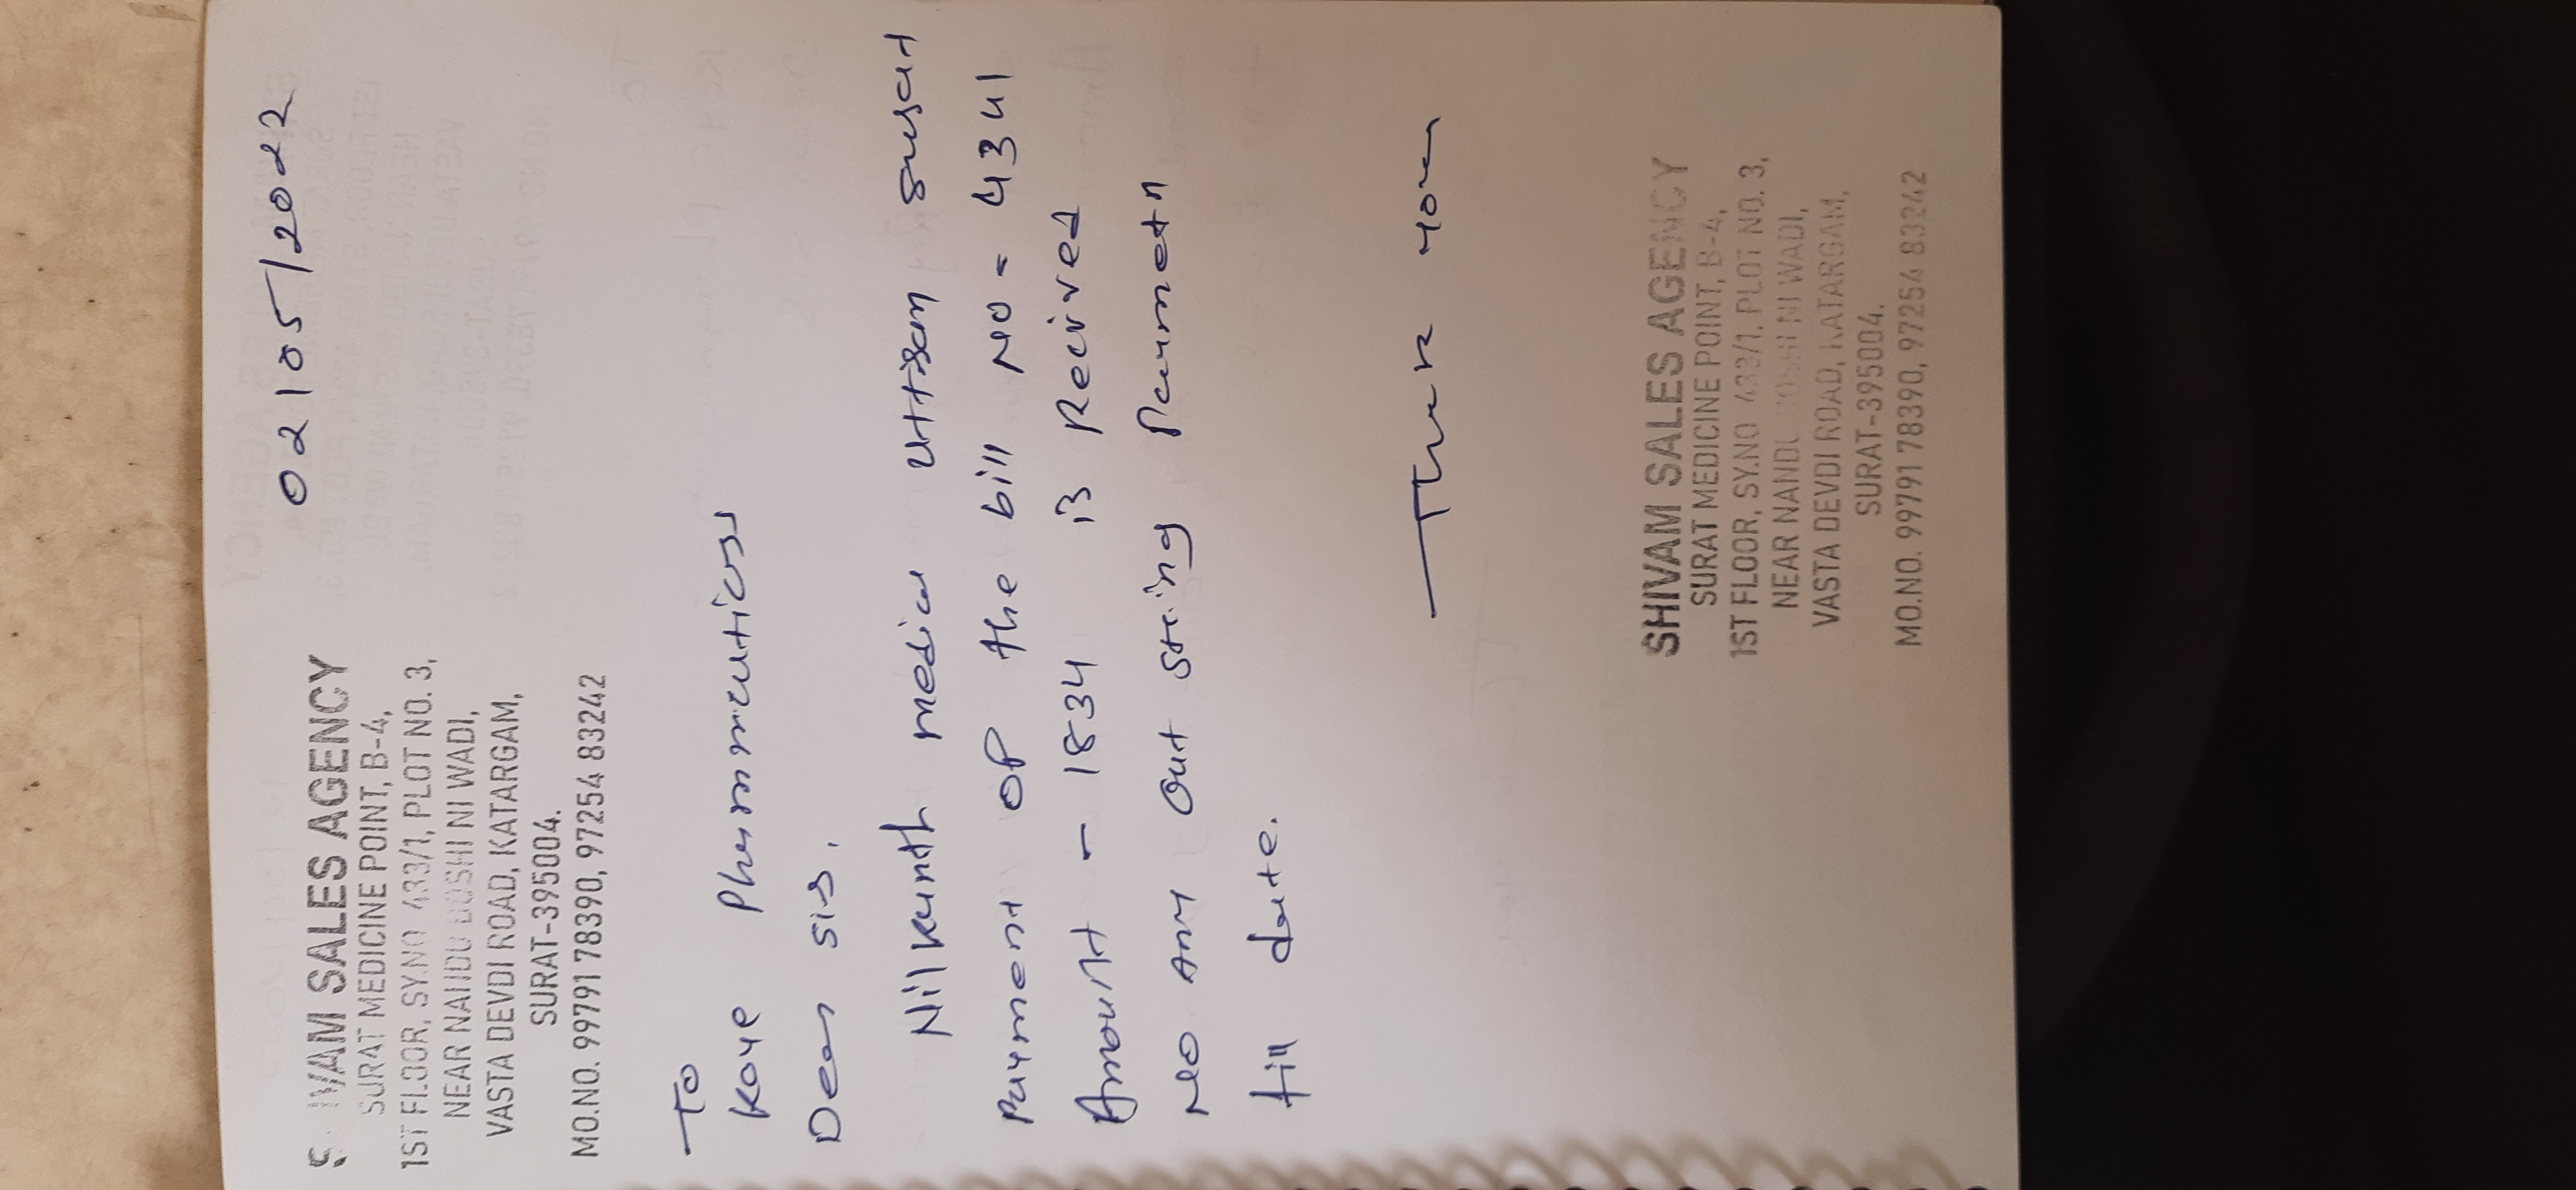 SHIVAM SALES AGENCY
SURAT MEDICINE POINT, B-4,
1ST FLOOR, SY.NO 433/1, PLOT NO. 3,
NEAR NANDU DOSHI NI WADI,
VASTA DEVDI ROAD, KATARGAM,
SURAT-395004.
MO.NO. 99791 78390, 97254 83242
02/05/2022
To
Kaye Pharmacuticss
Dear sir,
Nilkanth medical uttran surat
Payment of the bill No = 4341
Amount - 1834 is Recived
No Any out string Paymetn
till date.
Thank you
SHIVAM SALES AGENCY
SURAT MEDICINE POINT, B-4,
1ST FLOOR, SY.NO 433/1, PLOT NO. 3,
NEAR NANDU DOSHI NI WADI,
VASTA DEVDI ROAD, KATARGAM,
SURAT-395004.
MO.NO. 99791 78390, 97254 83242